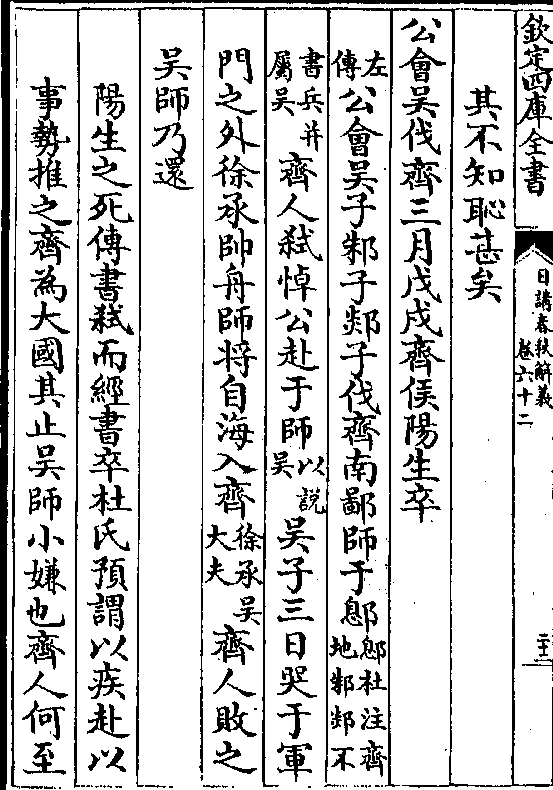 欽定四庫全書
日講春秋解義
卷六十二
二十二
其不知恥甚矣
公會吳伐齊三月戊戌齊侯陽生卒
左傳公會吳子邾子郯子伐齊南鄙師于鄎鄎杜注齊地邾郯不
書兵并屬吳齊人弒悼公赴于師以說吳吳子三日哭于軍
門之外徐承帥舟師將自海入齊徐承吳大夫齊人敗之
吳師乃還
陽生之死傳書弒而經書卒杜氏預謂以疾赴以
事勢推之齊為大國其止吳師小嫌也齊人何至